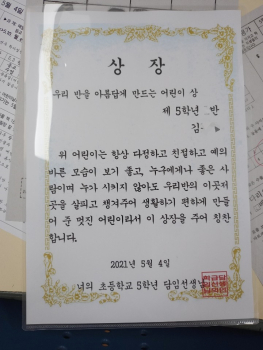 상 장
우리 반을 아름답게 만드는 어린이 상
제 5학년 반
김
위 어린이는 항상 다정하고 친절하고 예의
바른 모습이 보기 좋고, 누구에게나 좋은 사
람이며 누가 시키지 않아도 우리반의 이곳저
곳을 살피고 챙겨주어 생활하기 편하게 만들
어 준 멋진 어린이라서 이 상장을 주어 칭찬
합니다.
2021년 5월 4일
너의 초등학교 5학년 담임선생님
5월 4일